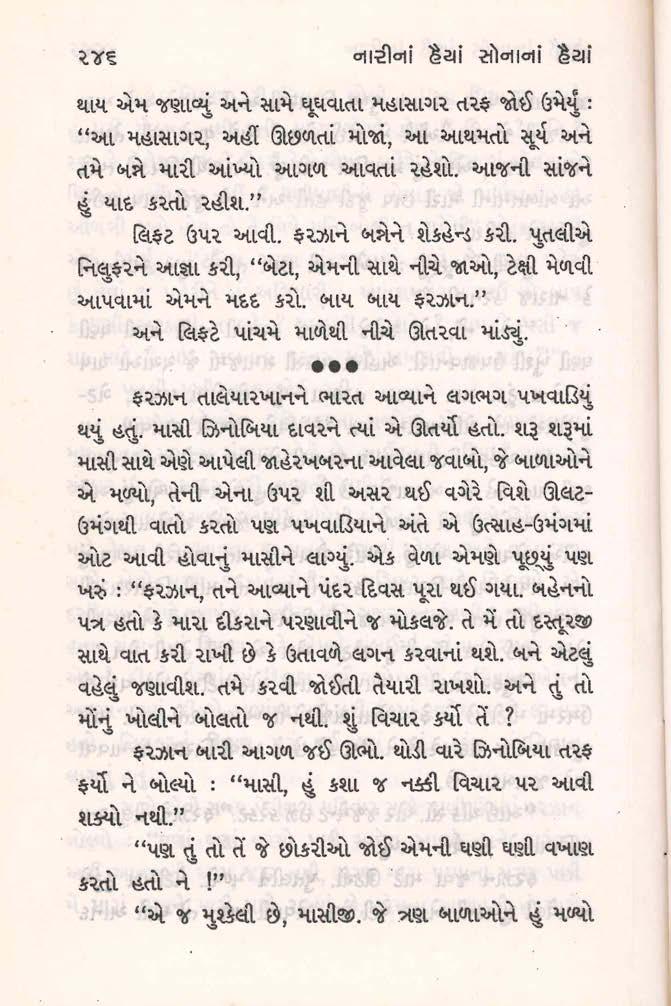 ૨૪૬ નારીનાં હૈયાં સોનાનાં હૈયાં
થાય એમ જણાવ્યું અને સામે ઘૂઘવાતા મહાસાગર તરફ જોઈ ઉમેર્યું :
“આ મહાસાગર, અહીં ઊછળતાં મોજાં, આ આથમતો સૂર્ય અને
તમે બન્ને મારી આંખ્યો આગળ આવતાં રહેશો. આજની સાંજને
હું યાદ કરતો રહીશ.”
લિફટ ઉપર આવી. ફરઝાને બન્નેને શેકહેન્ડ કરી. પુતલીએ
નિલુફરને આજ્ઞા કરી, “બેટા, એમની સાથે નીચે જાઓ, ટેક્ષી મેળવી
આપવામાં એમને મદદ કરો. બાય બાય ફરઝાન.”
અને લિફટે પાંચમે માળેથી નીચે ઊતરવા માંડ્યું.
●●●
ફરઝાન તાલેયારખાનને ભારત આવ્યાને લગભગ પખવાડિયું
થયું હતું. માસી ઝિનોબિયા દાવરને ત્યાં એ ઊતર્યો હતો. શરૂ શરૂમાં
માસી સાથે એણે આપેલી જાહેરખબરના આવેલા જવાબો, જે બાળાઓને
એ મળ્યો, તેની એના ઉપર શી અસર થઈ વગેરે વિશે ઊલટ-
ઉમંગથી વાતો કરતો પણ પખવાડિયાને અંતે એ ઉત્સાહ-ઉમંગમાં
ઓટ આવી હોવાનું માસીને લાગ્યું. એક વેળા એમણે પૂછ્યું પણ
ખરું : “ફરઝાન, તને આવ્યાને પંદર દિવસ પૂરા થઈ ગયા. બહેનનો
પત્ર હતો કે મારા દીકરાને પરણાવીને જ મોકલજે. તે મેં તો દસ્તૂરજી
સાથે વાત કરી રાખી છે કે ઉતાવળે લગન કરવાનાં થશે. બને એટલું
વહેલું જણાવીશ. તમે કરવી જોઈતી તૈયારી રાખશો. અને તું તો
મોંનું ખોલીને બોલતો જ નથી. શું વિચાર કર્યો તેં ?
ફરઝાન બારી આગળ જઈ ઊભો. થોડી વારે ઝિનોબિયા તરફ
ફર્યો ને બોલ્યો : “માસી, હું કશા જ નક્કી વિચાર પર આવી
શક્યો નથી.”
“પણ તું તો તેં જે છોકરીઓ જોઈ એમની ઘણી ઘણી વખાણ
કરતો હતો ને !”
“એ જ મુશ્કેલી છે, માસીજી. જે ત્રણ બાળાઓને હું મળ્યો